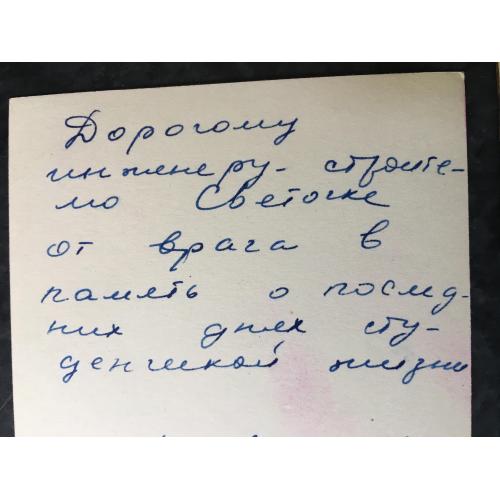 Дорогому
инженеру- строите-
лю Светочке
от врага в
память о послед-
них днях сту-
денческой жизни